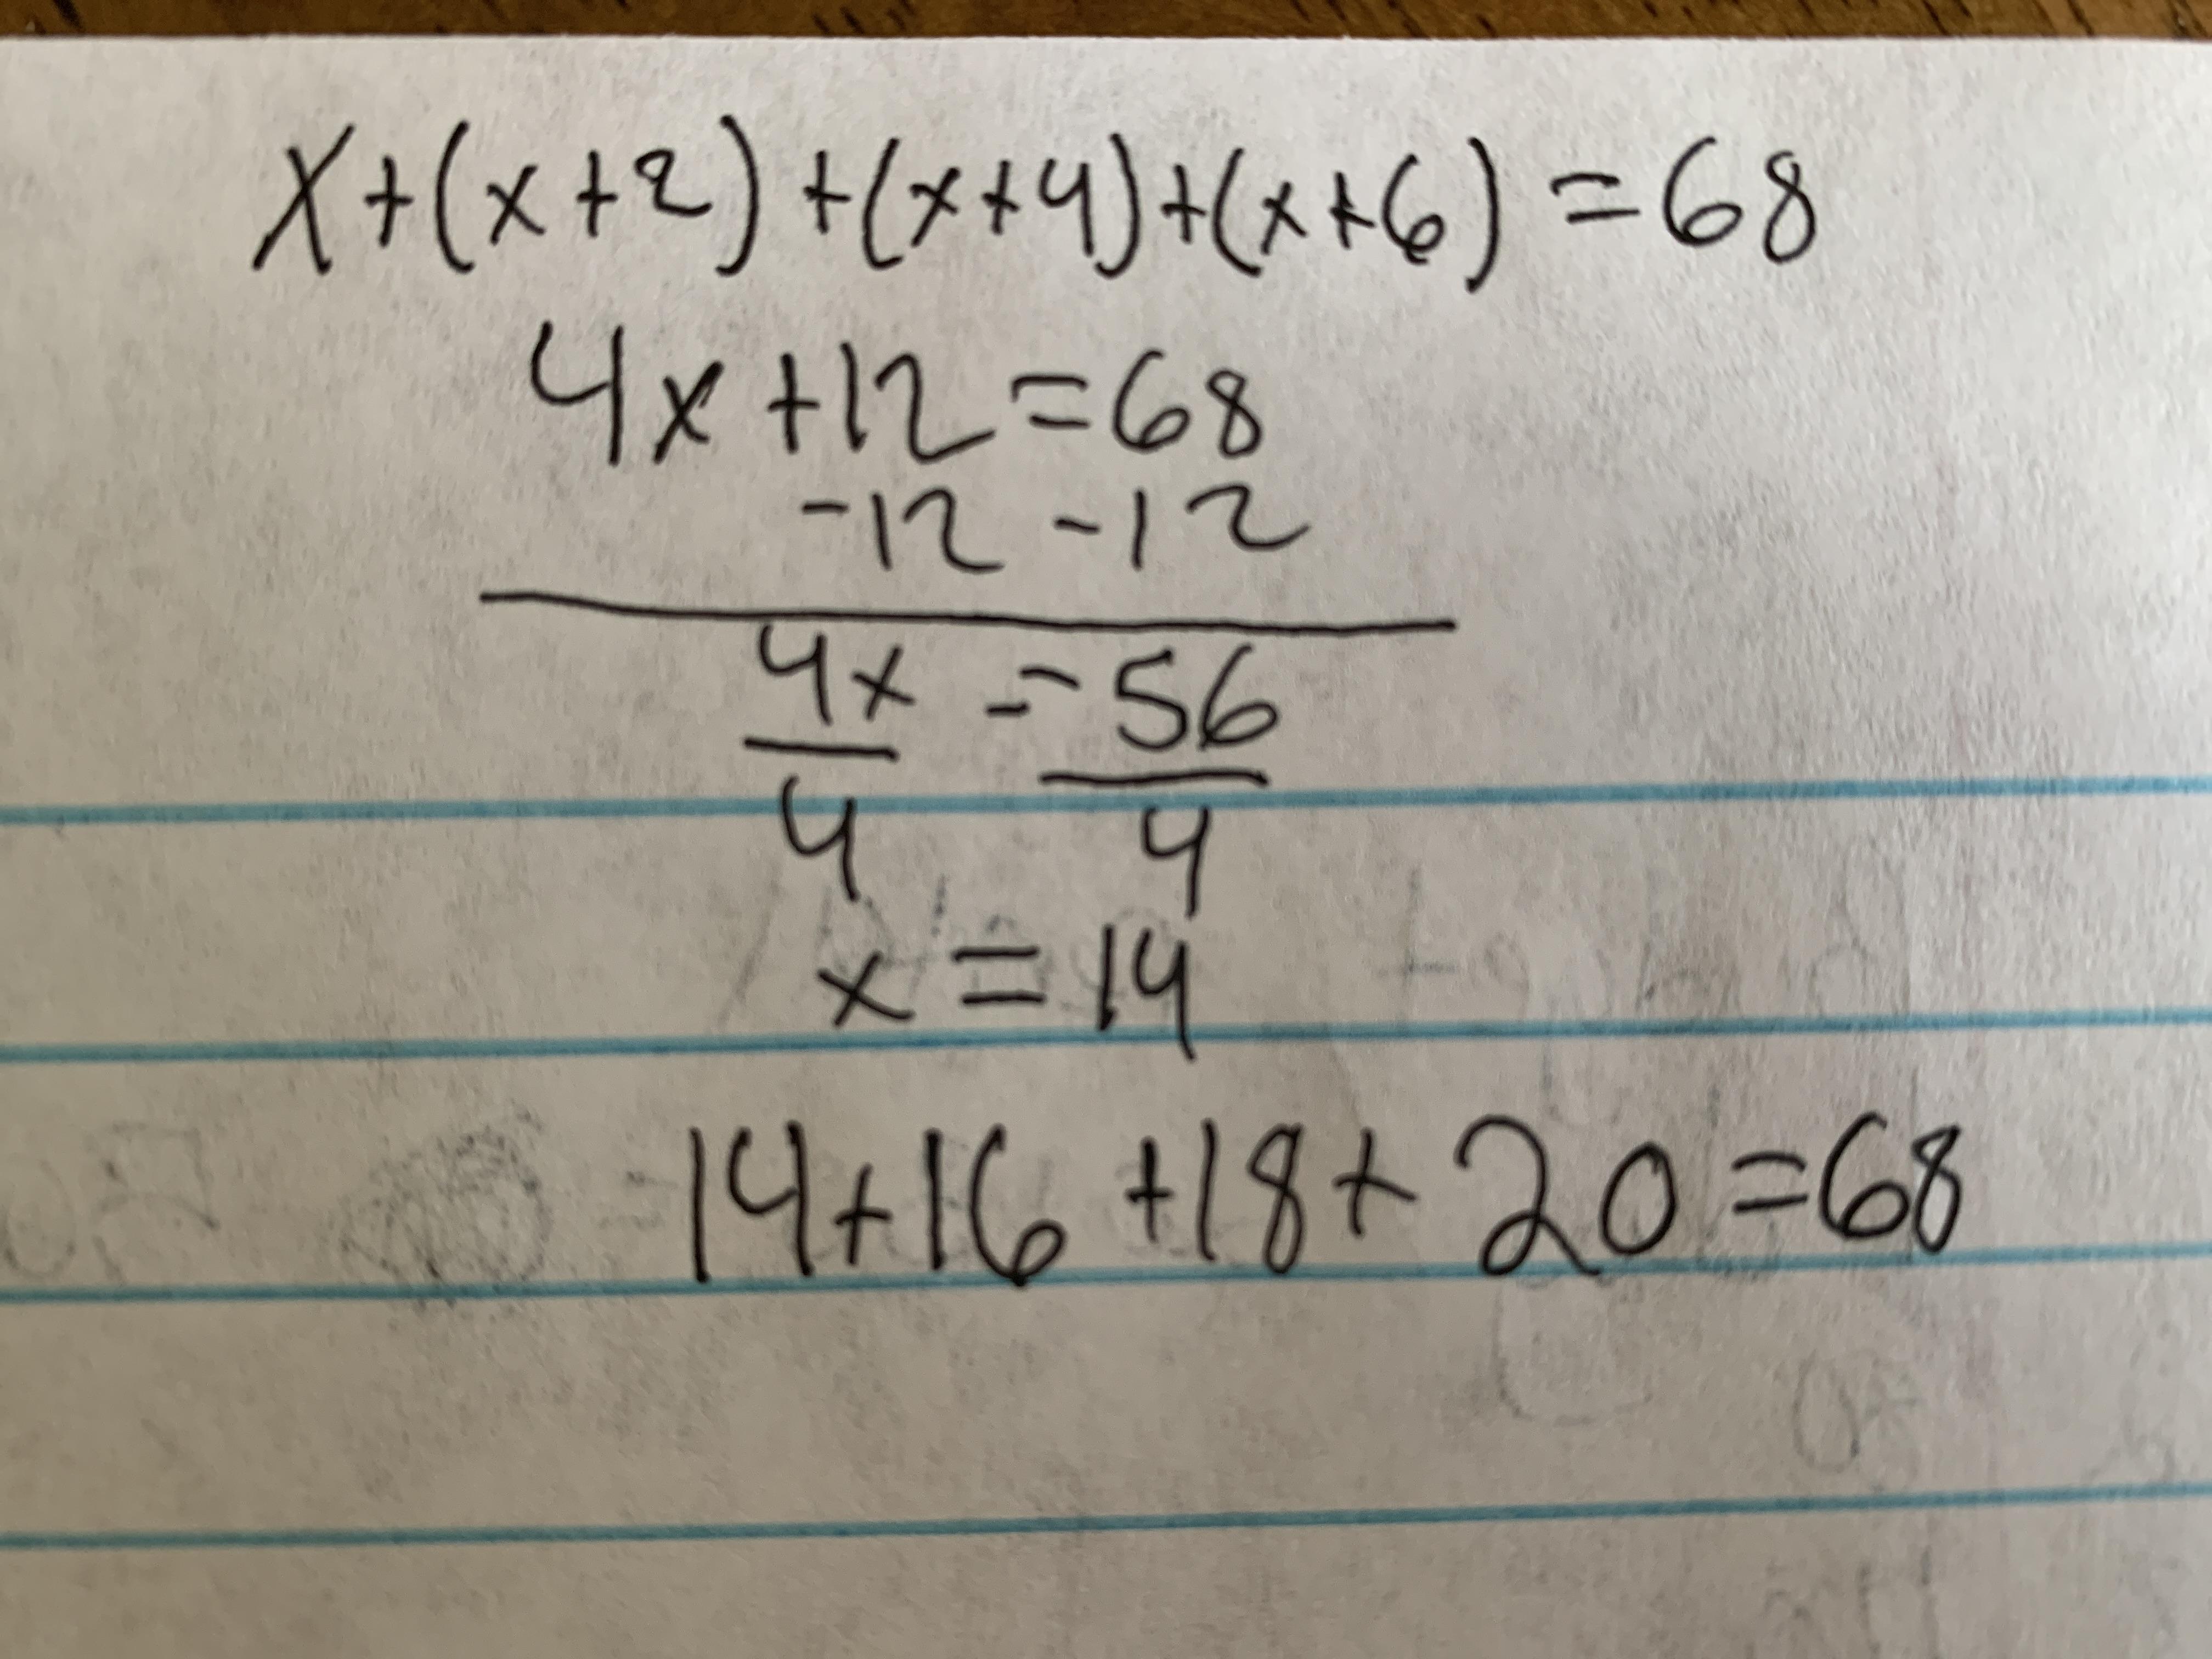 x+(x+2)+(x+4)+(x+6)=68
4x+12=68
-12 -12
4x=56
4 4
x=14
14+16+18+20=68